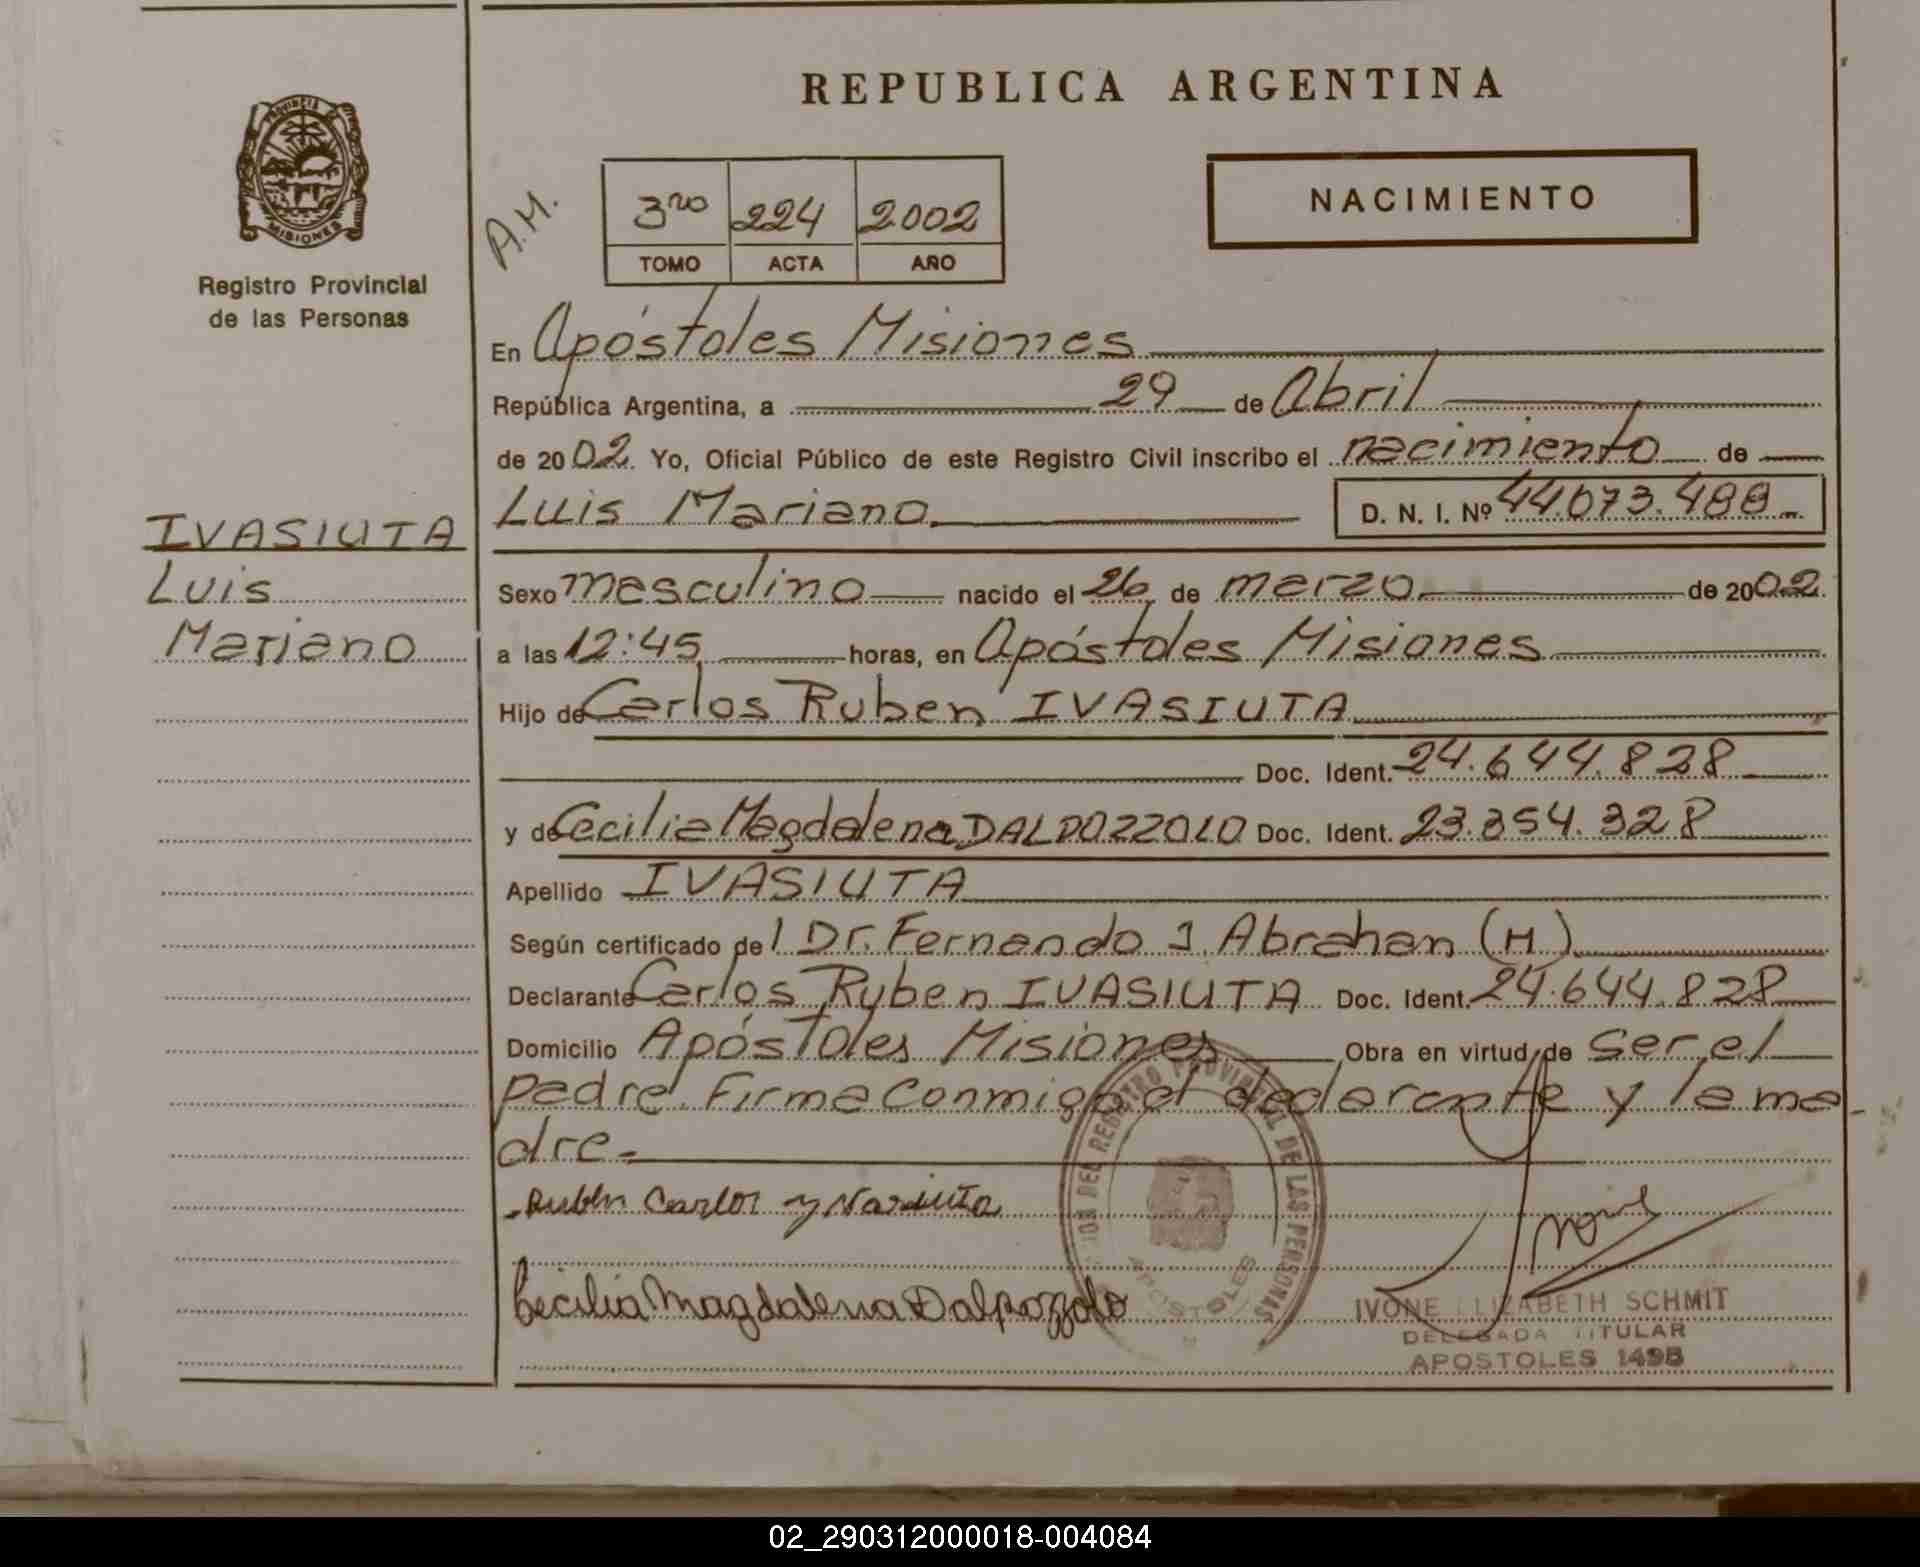 REPUBLICA ARGENTINA
PROVINCIA DE
MISIONES
Registro Provincial
de las Personas
A.M.
3ro 224 2002
TOMO ACTA AÑO
NACIMIENTO
En Apóstoles Misiones
República Argentina, a 29 de Abril
de 2002. Yo, Oficial Público de este Registro Civil inscribo el nacimiento de
Luis Mariano D. N. I. Nº 44.073.488
IVASIUTA
Luis
Mariano
Sexo masculino nacido el 26 de marzo de 2002.
a las 12:45 horas, en Apóstoles Misiones
Hijo de Carlos Ruben IVASIUTA
Doc. Ident. 24.644.828
y de Cecilia Magdalena DALPOZZOLO Doc. Ident. 23.354.328
Apellido IVASIUTA
Según certificado del Dr. Fernando J. Abrahan (H)
Declarante Carlos Ruben IVASIUTA Doc. Ident. 24.644.828
Domicilio Apóstoles Misiones Obra en virtud de ser el
padre. Firma conmigo el declarante y la ma-
dre.-
Ruben Carlos
Cecilia Magdalena Dalpozzolo
DEL REGISTRO PROVINCIAL DE LAS PERSONAS
APOSTOLES
IVONE ELIZABETH SCHMIT
DELEGADA TITULAR
APOSTOLES 1498
02_290312000018-004084